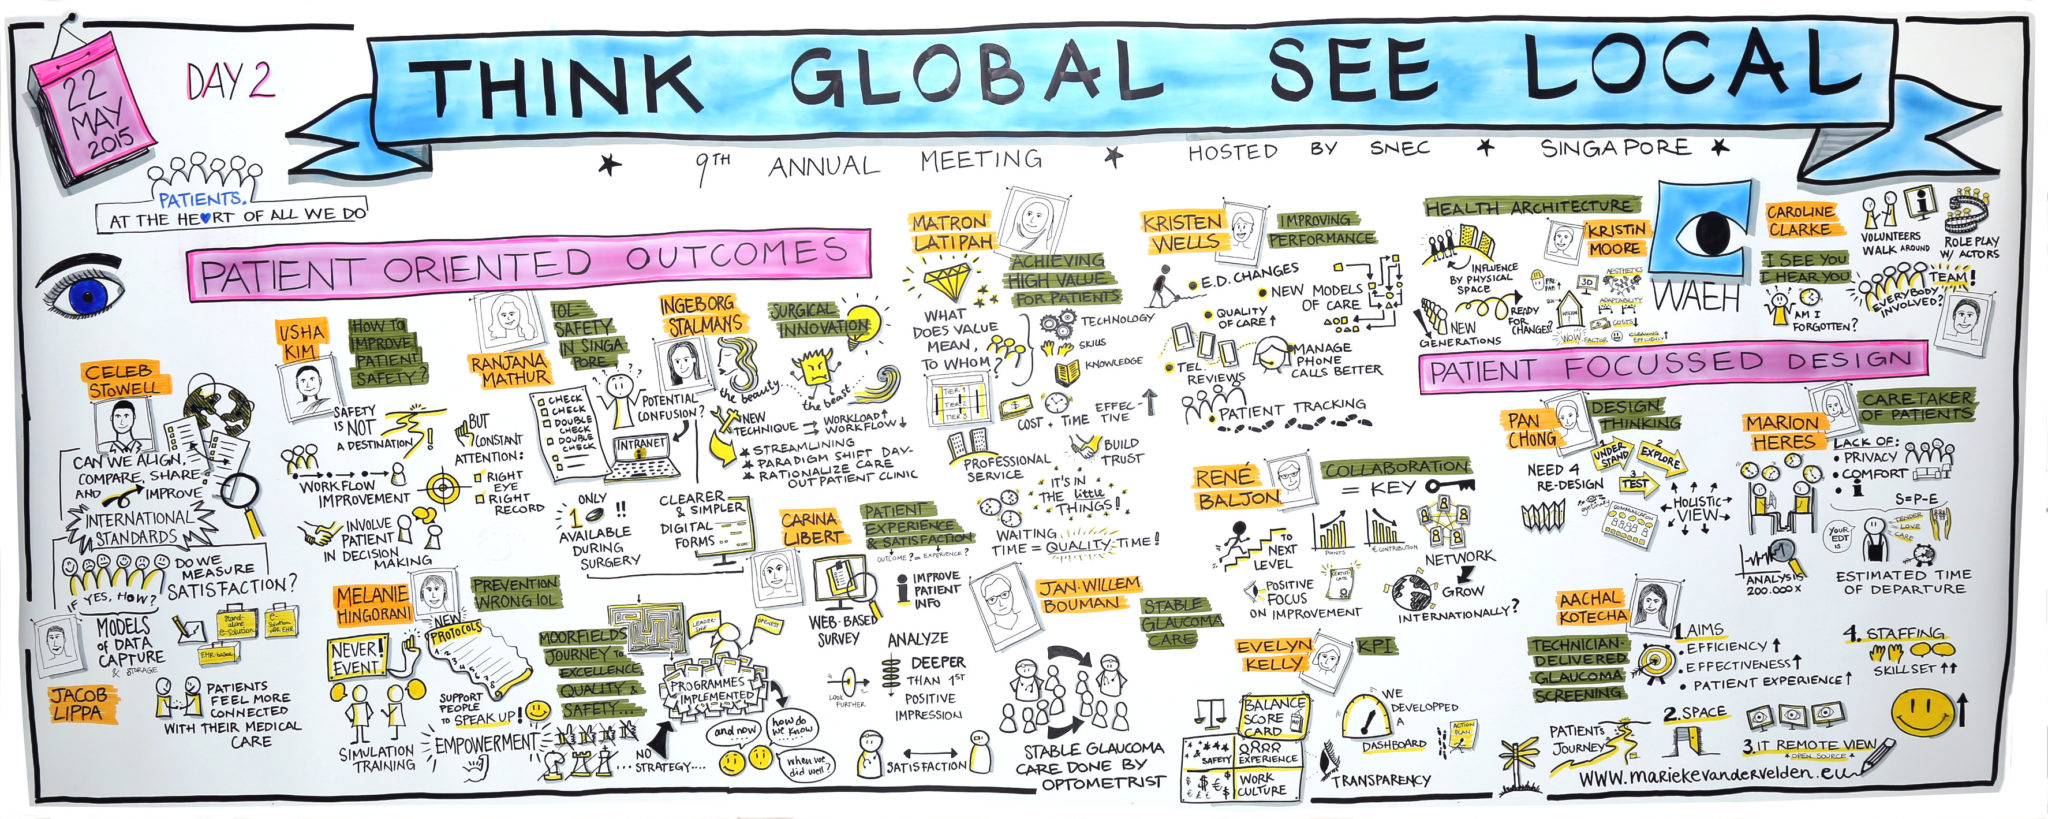 22
MAY
2015
DAY 2
THINK GLOBAL SEE LOCAL
9TH ANNUAL MEETING
HOSTED BY SNEC
SINGAPORE
PATIENTS.
AT THE HE♥RT OF ALL WE DO
PATIENT ORIENTED OUTCOMES
CELEB
STOWELL
CAN WE ALIGN,
COMPARE, SHARE
AND IMPROVE
INTERNATIONAL
STANDARDS
DO WE
MEASURE
SATISFACTION?
IF YES, HOW?
MODELS
OF DATA
CAPTURE
& STORAGE
Stand-
alone
e-solution
e-
Solution
EHR-based
JACOB
LIPPA
PATIENTS
FEEL MORE
CONNECTED
WITH THEIR MEDICAL
CARE
USHA
KIM
HOW TO
IMPROVE
PATIENT
SAFETY?
SAFETY
IS NOT
A DESTINATION
!
BUT
CONSTANT
ATTENTION:
RIGHT
EYE
RIGHT
RECORD
WORKFLOW
IMPROVEMENT
INVOLVE
PATIENT
IN DECISION
MAKING
MELANIE
HINGORANI
PREVENTION
WRONG IOL
NEVER!
EVENT
NEW
PROTOCOLS
SIMULATION
TRAINING
SUPPORT
PEOPLE
TO SPEAK UP!
EMPOWERMENT
RANJANA
MATHUR
IOL
SAFETY
IN SINGA-
PORE
CHECK
CHECK
DOUBLE
CHECK
DOUBLE
CHECK
POTENTIAL
CONFUSION?
INTRANET
ONLY
1 !!
AVAILABLE
DURING
SURGERY
CLEARER
& SIMPLER
DIGITAL
FORMS
MOORFIELDS
JOURNEY TO
EXCELLENCE
QUALITY &
SAFETY...
LEADER-
SHIP
OPENESS
PROGRAMMES
IMPLEMENTED
... NO
STRATEGY....
and now...
how do
we know...
when we
did well?
INGEBORG
STALMANS
SURGICAL
INNOVATION
the beauty
the beast
NEW
TECHNIQUE
WORKLOAD↑
WORKFLOW↓
★ STREAMLINING
★ PARADIGM SHIFT DAY-
★ RATIONALIZE CARE
OUT PATIENT CLINIC
CARINA
LIBERT
!!
PATIENT
EXPERIENCE
& SATISFACTION
OUTCOME? = EXPERIENCE?
WEB-BASED
SURVEY
i IMPROVE
PATIENT
INFO
LOOK
FURTHER
ANALYZE
DEEPER
THAN 1ST
POSITIVE
IMPRESSION
SATISFACTION
MATRON
LATIPAH
ACHIEVING
HIGH VALUE
FOR PATIENTS
WHAT
DOES VALUE
MEAN,
TO WHOM?
TIER 1
TIER 2
TIER 3
TECHNOLOGY
SKILLS
KNOWLEDGE
COST + TIME
EFFEC-
TIVE
PROFESSIONAL
SERVICE
BUILD
TRUST
IT'S IN
THE little
THINGS!
WAITING
TIME = QUALITY TIME!
JAN-WILLEM
BOUMAN
STABLE
GLAUCOMA
CARE
STABLE GLAUCOMA
CARE DONE BY
OPTOMETRIST
KRISTEN
WELLS
IMPROVING
PERFORMANCE
E.D. CHANGES
NEW MODELS
OF CARE
QUALITY
OF CARE ↑
TEL.
REVIEWS
MANAGE
PHONE
CALLS BETTER
PATIENT TRACKING
RENÉ
BALJON
COLLABORATION
= KEY
TO
NEXT
LEVEL
POINTS
€ CONTRIBUTION
NETWORK
POSITIVE
FOCUS
ON IMPROVEMENT
GROW
INTERNATIONALLY?
EVELYN
KELLY
KPI
BALANCE
SCORE
CARD
SAFETY
EXPERIENCE
WORK
CULTURE
WE
DEVELOPPED
A
DASHBOARD
ACTION
PLAN
TRANSPARENCY
HEALTH ARCHITECTURE
KRISTIN
MOORE
INFLUENCE
BY PHYSICAL
SPACE
NEW
GENERATIONS
READY
FOR
CHANGE?
3D
AESTHETICS
ADAPTABILITY
COSTS↓
WOW FACTOR
CLEANING
EFFICIENCY
WAEH
CAROLINE
CLARKE
I SEE YOU
I HEAR YOU
VOLUNTEERS
WALK AROUND
ROLE PLAY
W/ ACTORS
AM I
FORGOTTEN?
TEAM!
EVERYBODY
INVOLVED?
PATIENT FOCUSSED DESIGN
PAN
CHONG
DESIGN
THINKING
NEED 4
RE-DESIGN
1
UNDER
STAND
2
EXPLORE
3
TEST
COMMUNICATION
HOLISTIC
VIEW
MARION
HERES
CARETAKER
OF PATIENTS
LACK OF:
• PRIVACY
• COMFORT
• i
S=P-E
YOUR
EDT
IS...
TENDER
LOVE
CARE
ANALYSIS
200.000 x
ESTIMATED TIME
OF DEPARTURE
AACHAL
KOTECHA
TECHNICIAN-
DELIVERED
GLAUCOMA
SCREENING
1. AIMS
• EFFICIENCY ↑
• EFFECTIVENESS ↑
• PATIENT EXPERIENCE ↑
2. SPACE
3. IT REMOTE VIEW
* OPEN SOURCE *
4. STAFFING
SKILLSET ↑↑
PATIENTS
JOURNEY
www.mariekevandervelden.eu